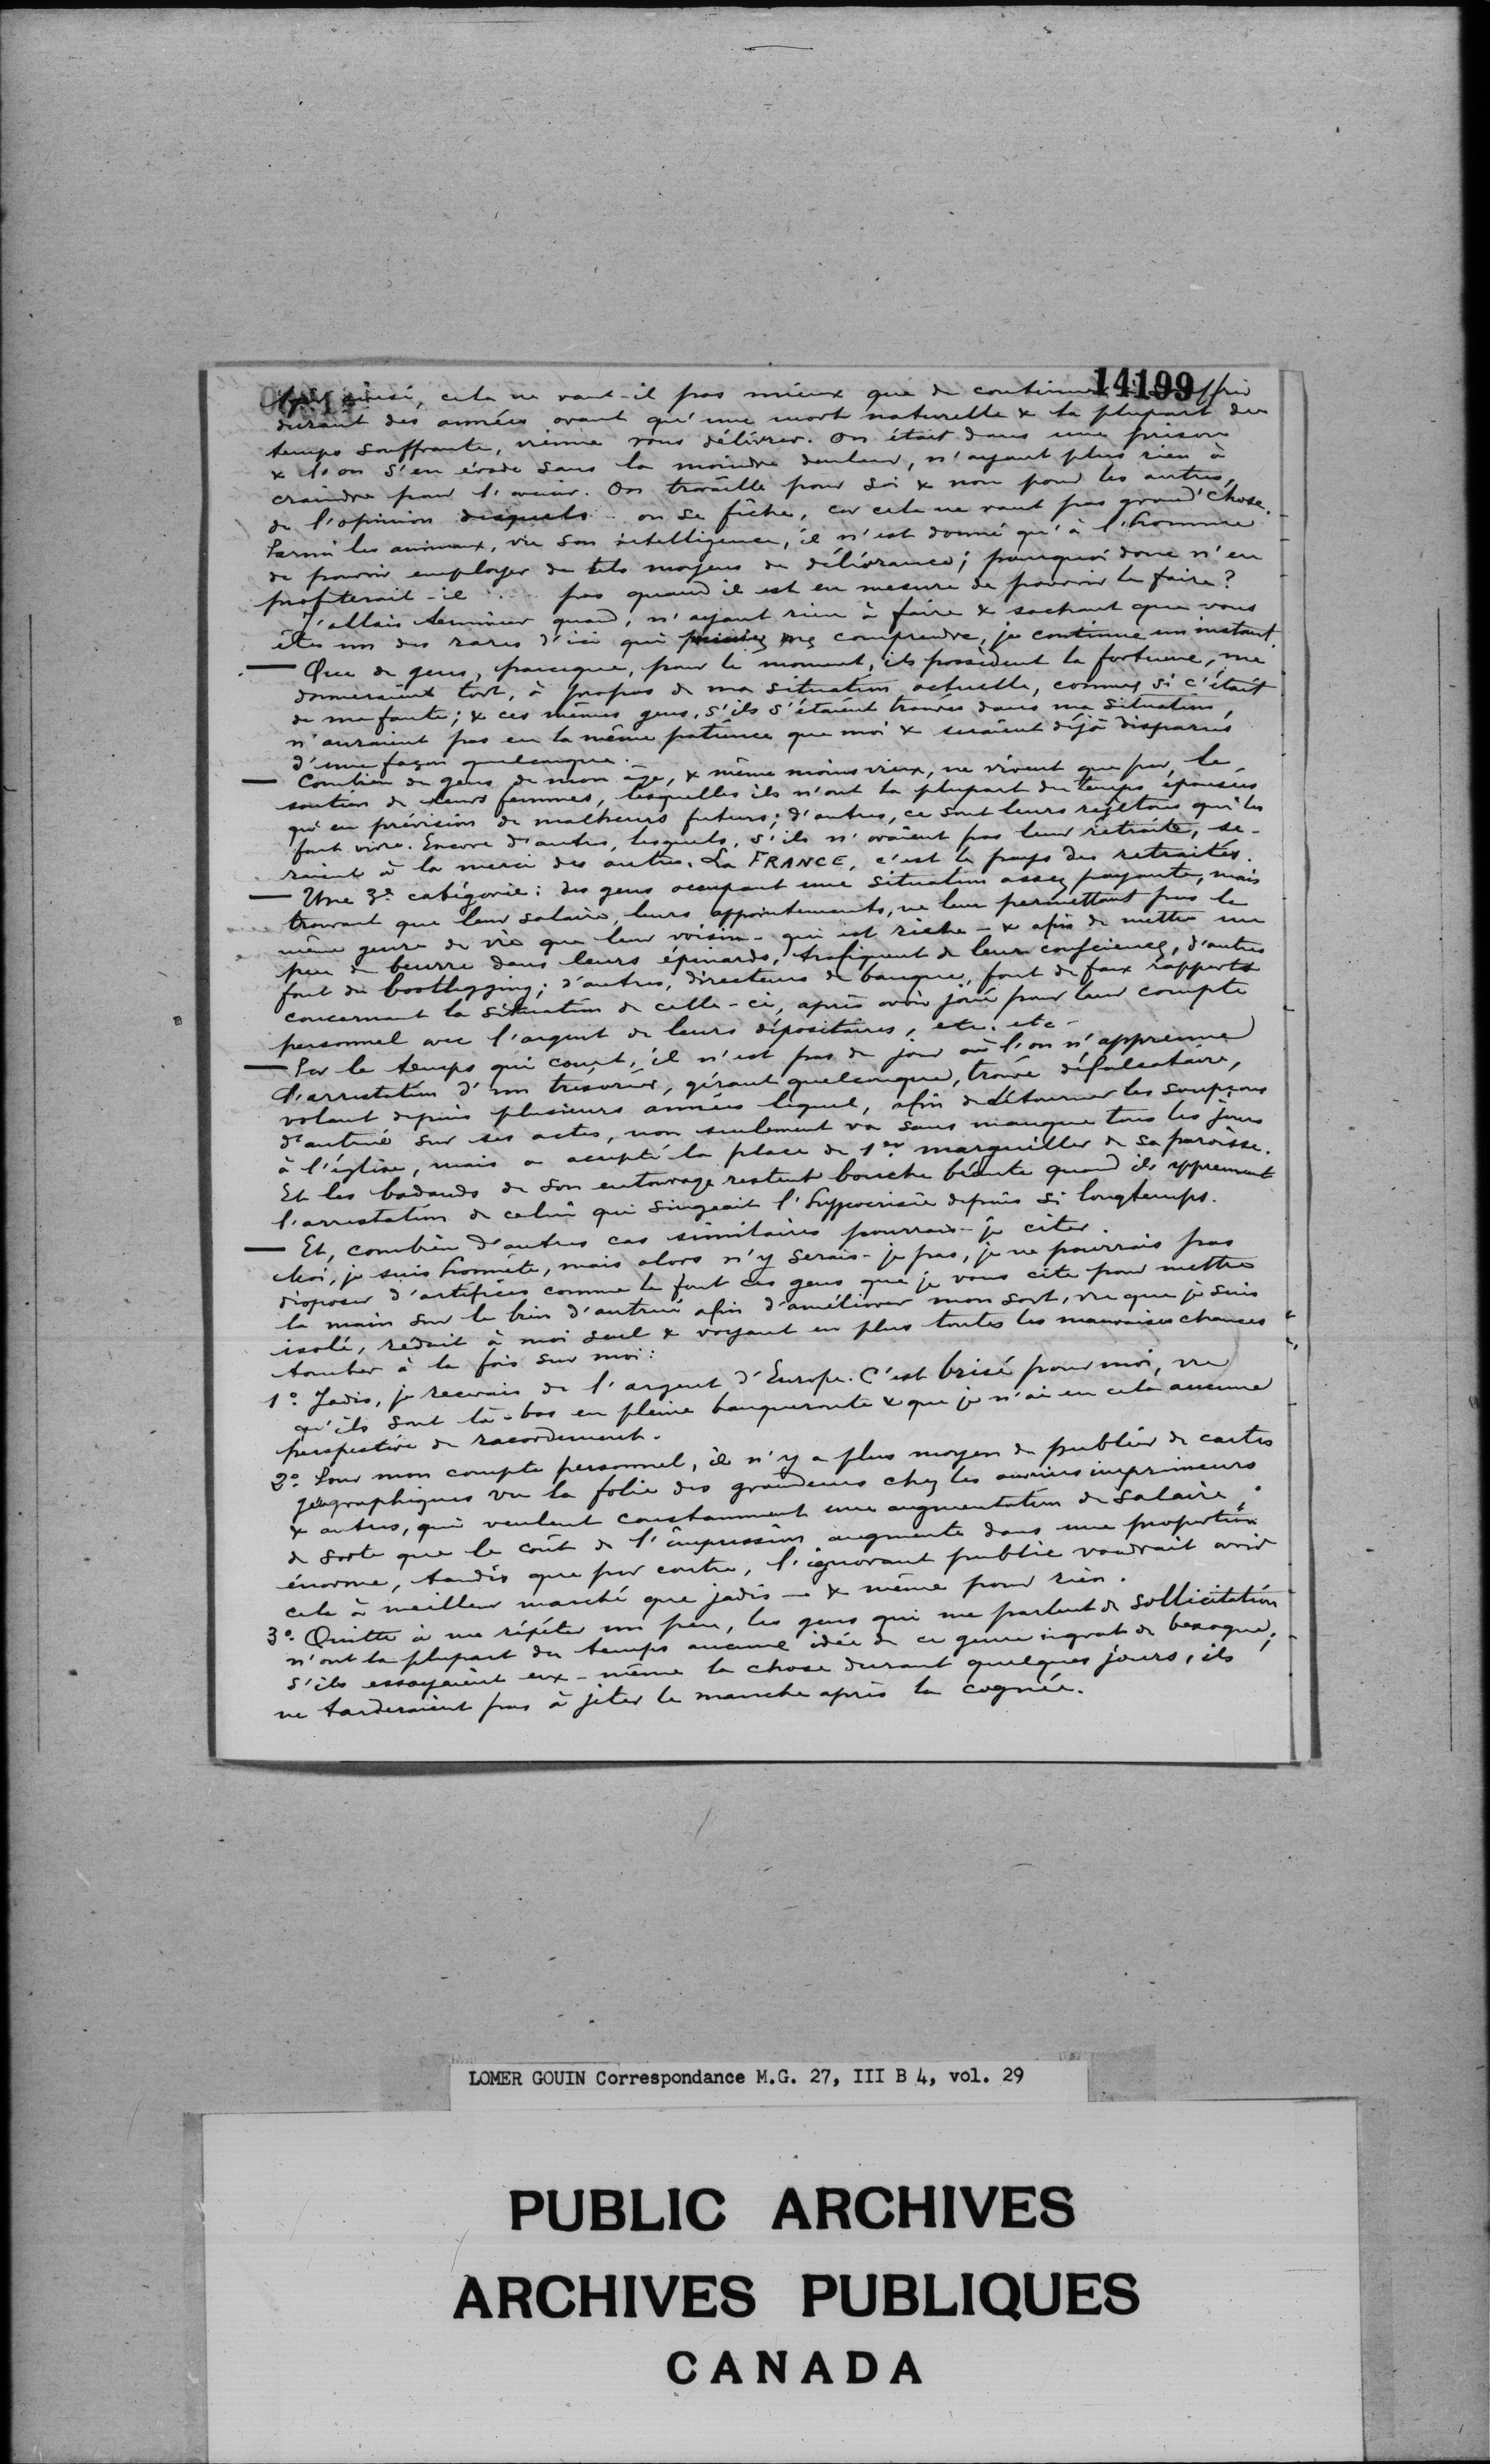 14199
ainsi, cela ne vaut-il pas mieux que de continuer à souffrir
durant des années avant qu'une mort naturelle & la plupart du
temps souffrante, vienne vous délivrer. On était dans une prison
& l'on s'en évade sans la moindre douleur, n'ayant plus rien à
craindre pour l'avenir. On travaille pour soi & non pour les autres,
de l'opinion desquels on se fiche, car cela ne vaut pas grand'chose.
Parmi les animaux, vu son intelligence, il n'est donné qu'à l'homme
de pouvoir employer de tels moyens de délivrance; pourquoi donc n'en
profiterait-il pas quand il est en mesure de pouvoir le faire?
J'allais terminer quand, n'ayant rien à faire & sachant que vous
êtes un des rares d'ici qui puissiez me comprendre, je continue un instant.
— Que de gens, parceque, pour le moment, ils possèdent la fortune, me
donneraient tort, à propos de ma situation actuelle, comme si c'était
de ma faute; & ces mêmes gens, s'ils s'étaient trouvés dans ma situation,
n'auraient pas eu la même patience que moi & seraient déjà disparus
d'une façon quelconque.
— Combien de gens de mon âge, & même moins vieux, ne vivent que par le
soutien de leurs femmes, lesquelles ils n'ont la plupart du temps épousées
qu'en prévision de malheurs futurs; d'autres, ce sont leurs rejetons qui les
font vivre. Encore d'autres, lesquels, s'ils n'avaient pas leur retraite, se-
raient à la merci des autres. La FRANCE, c'est le pays des retraités.
— Une 3e catégorie: des gens occupant une situation assez payante, mais
trouvant que leur salaire, leurs appointements, ne leur permettant pas le
même genre de vie que leur voisin - qui est riche - & afin de mettre un
peu de beurre dans leurs épinards, trafiquent de leur conscience, d'autres
font du bootlegging; d'autres, directeurs de banque, font de faux rapports
concernant la situation de celle-ci, après avoir joué pour leur compte
personnel avec l'argent de leurs dépositaires, etc. etc -
— Par le temps qui court, il n'est pas de jour où l'on n'apprenne
l'arrestation d'un trésorier, gérant quelconque, trouvé défalcataire,
volant depuis plusieurs années lequel, afin de détourner les soupçons
d'autrui sur ses actes, non seulement va sans manque tous les jours
à l'église, mais a accepté la place de 1er marguiller de sa paroisse.
Et les badauds de son entourage restent bouche béante quand ils apprennent
l'arrestation de celui qui singeait l'hyppocrisie depuis si longtemps.
— Et, combien d'autres cas similaires pourrais-je citer.
Moi, je suis honnête, mais alors n'y serais-je pas, je ne pourrais pas
disposer d'artifices comme le font ces gens que je vous cite pour mettre
la main sur le bien d'autrui afin d'améliorer mon sort, vu que je suis
isolé, réduit à moi seul & voyant en plus toutes les mauvaises chances
tomber à la fois sur moi:
1o. Jadis, je recevais de l'argent d'Europe. C'est brisé pour moi, vu
qu'ils sont là-bas en pleine banqueroute & que je n'ai en cela aucune
perspective de racordement.
2o. Pour mon compte personnel, il n'y a plus moyen de publier de cartes
géographiques vu la folie des grandeurs chez les ouvriers imprimeurs
& autres, qui veulent constamment une augmentation de salaire,
de sorte que le coût de l'impression augmente dans une proportion
énorme, tandis que par contre, l'ignorant public voudrait avoir
cela à meilleur marché que jadis — & même pour rien.
3o. Quitte à me répéter un peu, les gens qui me parlent de sollicitation
n'ont la plupart du temps aucune idée de ce genre ingrat de besogne;
s'ils essayaient eux-même la chose durant quelques jours, ils
ne tarderaient pas à jeter le manche après la cognée.
LOMER GOUIN Correspondance M.G. 27, III B 4, vol. 29
PUBLIC ARCHIVES
ARCHIVES PUBLIQUES
CANADA